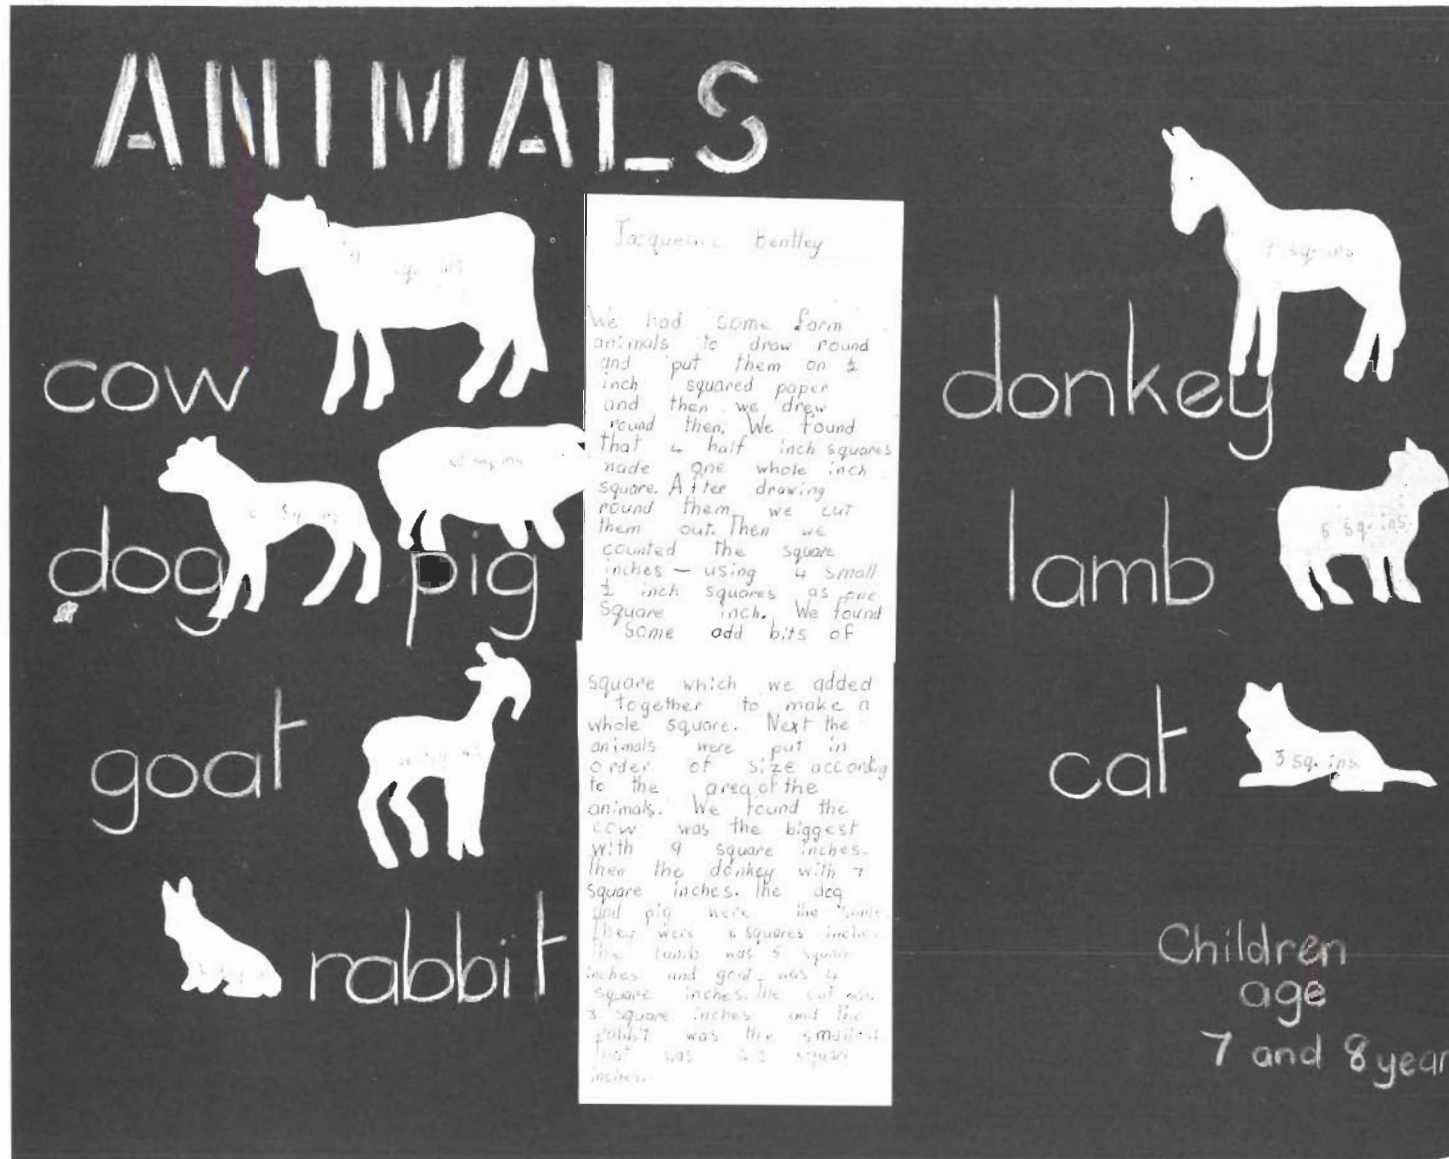 ANIMALS
cow
sq. ins
dog
sq. ins
pig
sq. ins
goat
rabbit
Bentley
We had some farm
animals to draw round
and put them on ½
inch squared paper
and then we drew
round then. We found
that 4 half inch squares
made one whole inch
square. After drawing
round them we cut
them out. Then we
counted the square
inches — using 4 small
½ inch squares as one
square inch. We found
some add bits of
square which we added
together to make a
whole square. Next the
animals were put in
order of size according
to the area of the
animals. We found the
cow was the biggest
with 9 square inches.
Then the donkey with 7
square inches. the dog
and pig were the same.
They were squares inches.
The lamb was 5 square
inches and goat was 4
square inches. the cat was
3 square inches and the
rabbit was the smallest
that was square
inches.
donkey
7 sq. ins
lamb
5 sq. ins.
cat
3 sq. ins.
Children
age
7 and 8 year